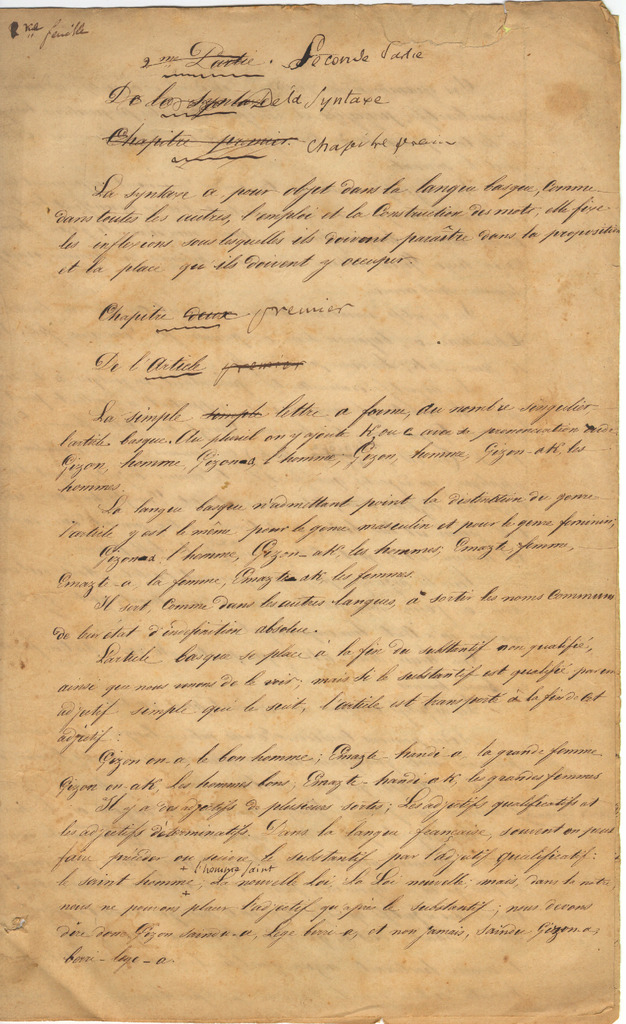 feuille
2me Partie. Seconde Partie
De la Syntaxe De la Syntaxe
Chapitre premier. Chapitre premier
La syntaxe a pour objet dans la langue basque, comme
dans toutes les autres, l'emploi et la Construction des mots; elle fixe
les inflexions sous lesquelles ils doivent paraître dans la proposition
et la place qu'ils doivent y occuper.
Chapitre deux premier
De l'Article premier
La simple simple lettre a forme, au nombre singulier
l'article basque. Au pluriel on y ajoute K, ou c avec sa prononciation
Gizon, homme, Gizon-a l'homme; Gizon, homme, Gizon-ak les
hommes.
La langue basque n'admettant point la distinction du genre
l'article y est le même pour le genre masculin et pour le genre feminin;
Gizon-a l'homme, Gizon-ak, les hommes; Emazte, femme,
Emazte-a, la femme, Emazte-ak, les femmes.
Il sert, comme dans les autres langues, à sortir les noms communs
de leur état d'indéfinition absolue.
L'article basque se place à la fin du substantif non qualifié,
ainsi que nous venons de le voir; mais si le substantif est qualifié par un
adjectif simple qui le suit, l'article est transporté à la fin de cet
adjectif:
Gizon on-a, le bon homme; Emazte handi-a la grande femme
Gizon on-ak, les hommes bons; Emazte-handi-ak, les grandes femmes
Il y a des adjectifs de plusieurs sortes; Les adjectifs qualificatifs et
les adjectifs déterminatifs. Dans la langue française, souvent on peut
faire précéder ou suivre le substantif par l'adjectif qualificatif:
+ l'homme saint
le saint homme; La nouvelle Loi, La Loi nouvelle; mais, dans la nôtre,
+
nous ne pouvons placer l'adjectif qu'après le substantif; nous devons
dire donc Gizon saindu-a, Lege berri-a, et non jamais, Saindu Gizon-a,
berri-lege-a.